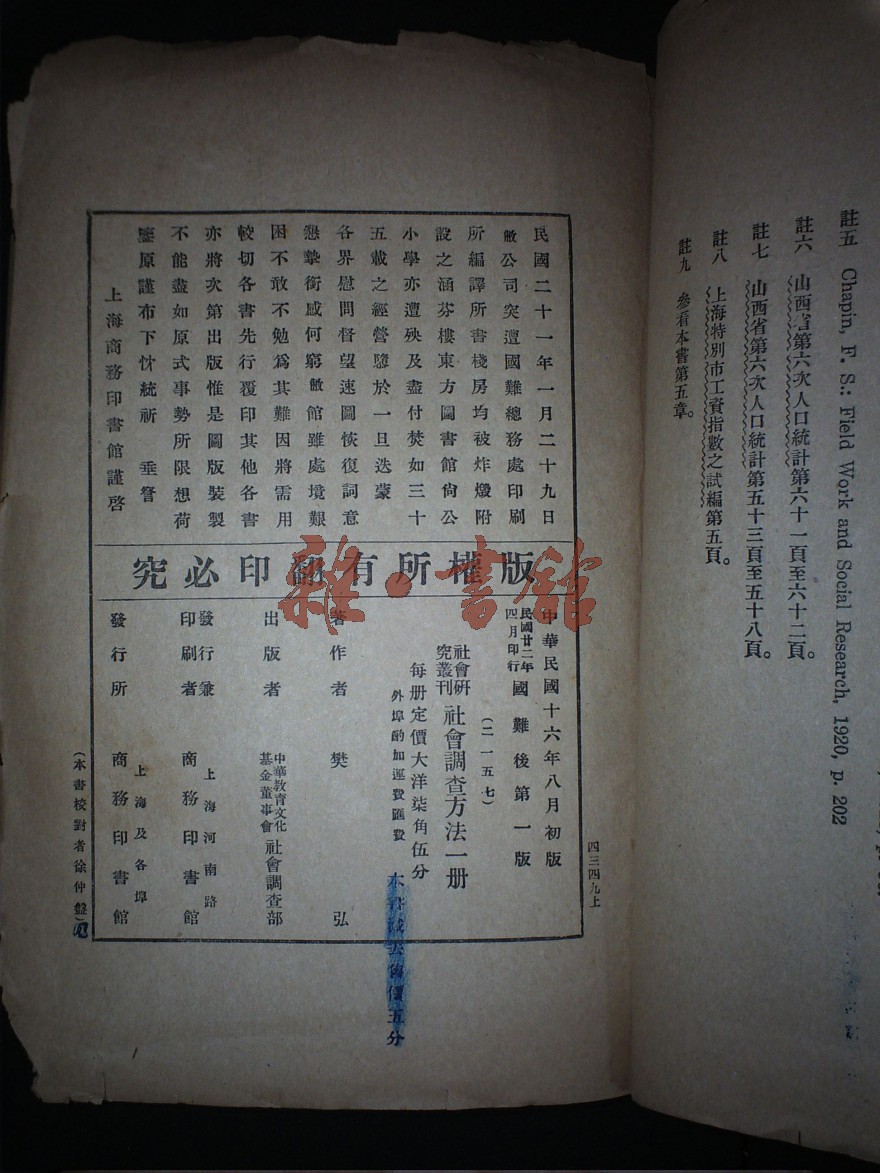 註五　Chapin, F. S.: Field Work and Social Research, 1920, p. 202
註六　山西省第六次人口統計第六十一頁至六十二頁。
註七　山西省第六次人口統計第五十三頁至五十八頁。
註八　上海特別市工資指數之試編第五頁。
註九　參看本書第五章。
民國二十一年一月二十九日
敝公司突遭國難總務處印刷
所編譯所書棧房均被炸燬附
設之涵芬樓東方圖書館尙公
小學亦遭殃及盡付焚如三十
五載之經營隳於一旦迭蒙
各界慰問督望速圖恢復詞意
懇摯銜感何窮敝館雖處境艱
困不敢不勉爲其難因將需用
較切各書先行覆印其他各書
亦將次第出版惟是圖版裝製
不能盡如原式事勢所限想荷
鑒原謹布下忱統祈　垂詧
上海商務印書館謹啓
版權所有翻印必究
四三四九上
中華民國十六年八月初版
民國廿二年四月印行　國難後第一版
(二一五七)
社會研究叢刊　社會調查方法一册
每册定價大洋柒角伍分
外埠酌加運費匯費
著作者　樊弘
出版者　中華教育文化基金董事會社會調查部
發行兼印刷者　上海河南路商務印書館
發行所　上海及各埠商務印書館
(本書校對者徐仲盤)
雜·書館